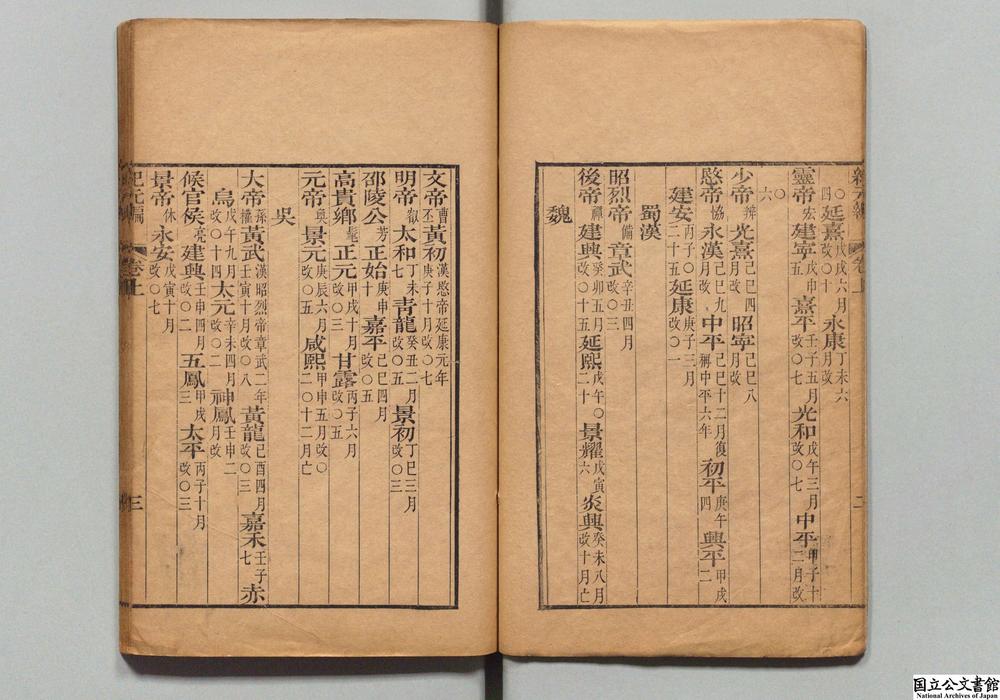 ○延熹戊戌六月改○十永康丁未六月改
四
靈帝宏建寧戊申五熹平壬子五月改○七光和戊午三月改○七中平甲子十二月改
○
六
少帝辨光熹己巳四月改昭寧己巳八月改
愍帝協永漢己巳九月改中平己巳十二月復稱中平六年初平庚午四興平甲戌二
建安丙子○二十五延康庚子三月改○一
蜀漢
昭烈帝備章武辛丑四月改○三
後帝禪建興癸卯五月改○十五延熙戊午○二十景耀戊寅六炎興癸未八月改十月亡
魏
文帝曹丕黃初漢愍帝延康元年庚子十月改○七
明帝叡太和丁未七青龍癸丑二月改○五景初丁巳三月改○三
邵陵公芳正始庚申十嘉平己巳四月改○五
高貴鄉髦正元甲戌十月改○三甘露丙子六月改○五
元帝奐景元庚辰六月改○五咸熙甲申五月改○二○十二月亡
吳
大帝孫權黃武漢昭烈帝章武二年壬寅十月改○八黃龍己酉四月改○三嘉禾壬子七赤
烏戊午九月改○十四太元辛未四月改○二神鳳壬申二月改
候官侯亮建興壬申四月改○二五鳳甲戌三太平丙子十月改○三
景帝休永安戊寅十月改○七
紀元編 卷上 三